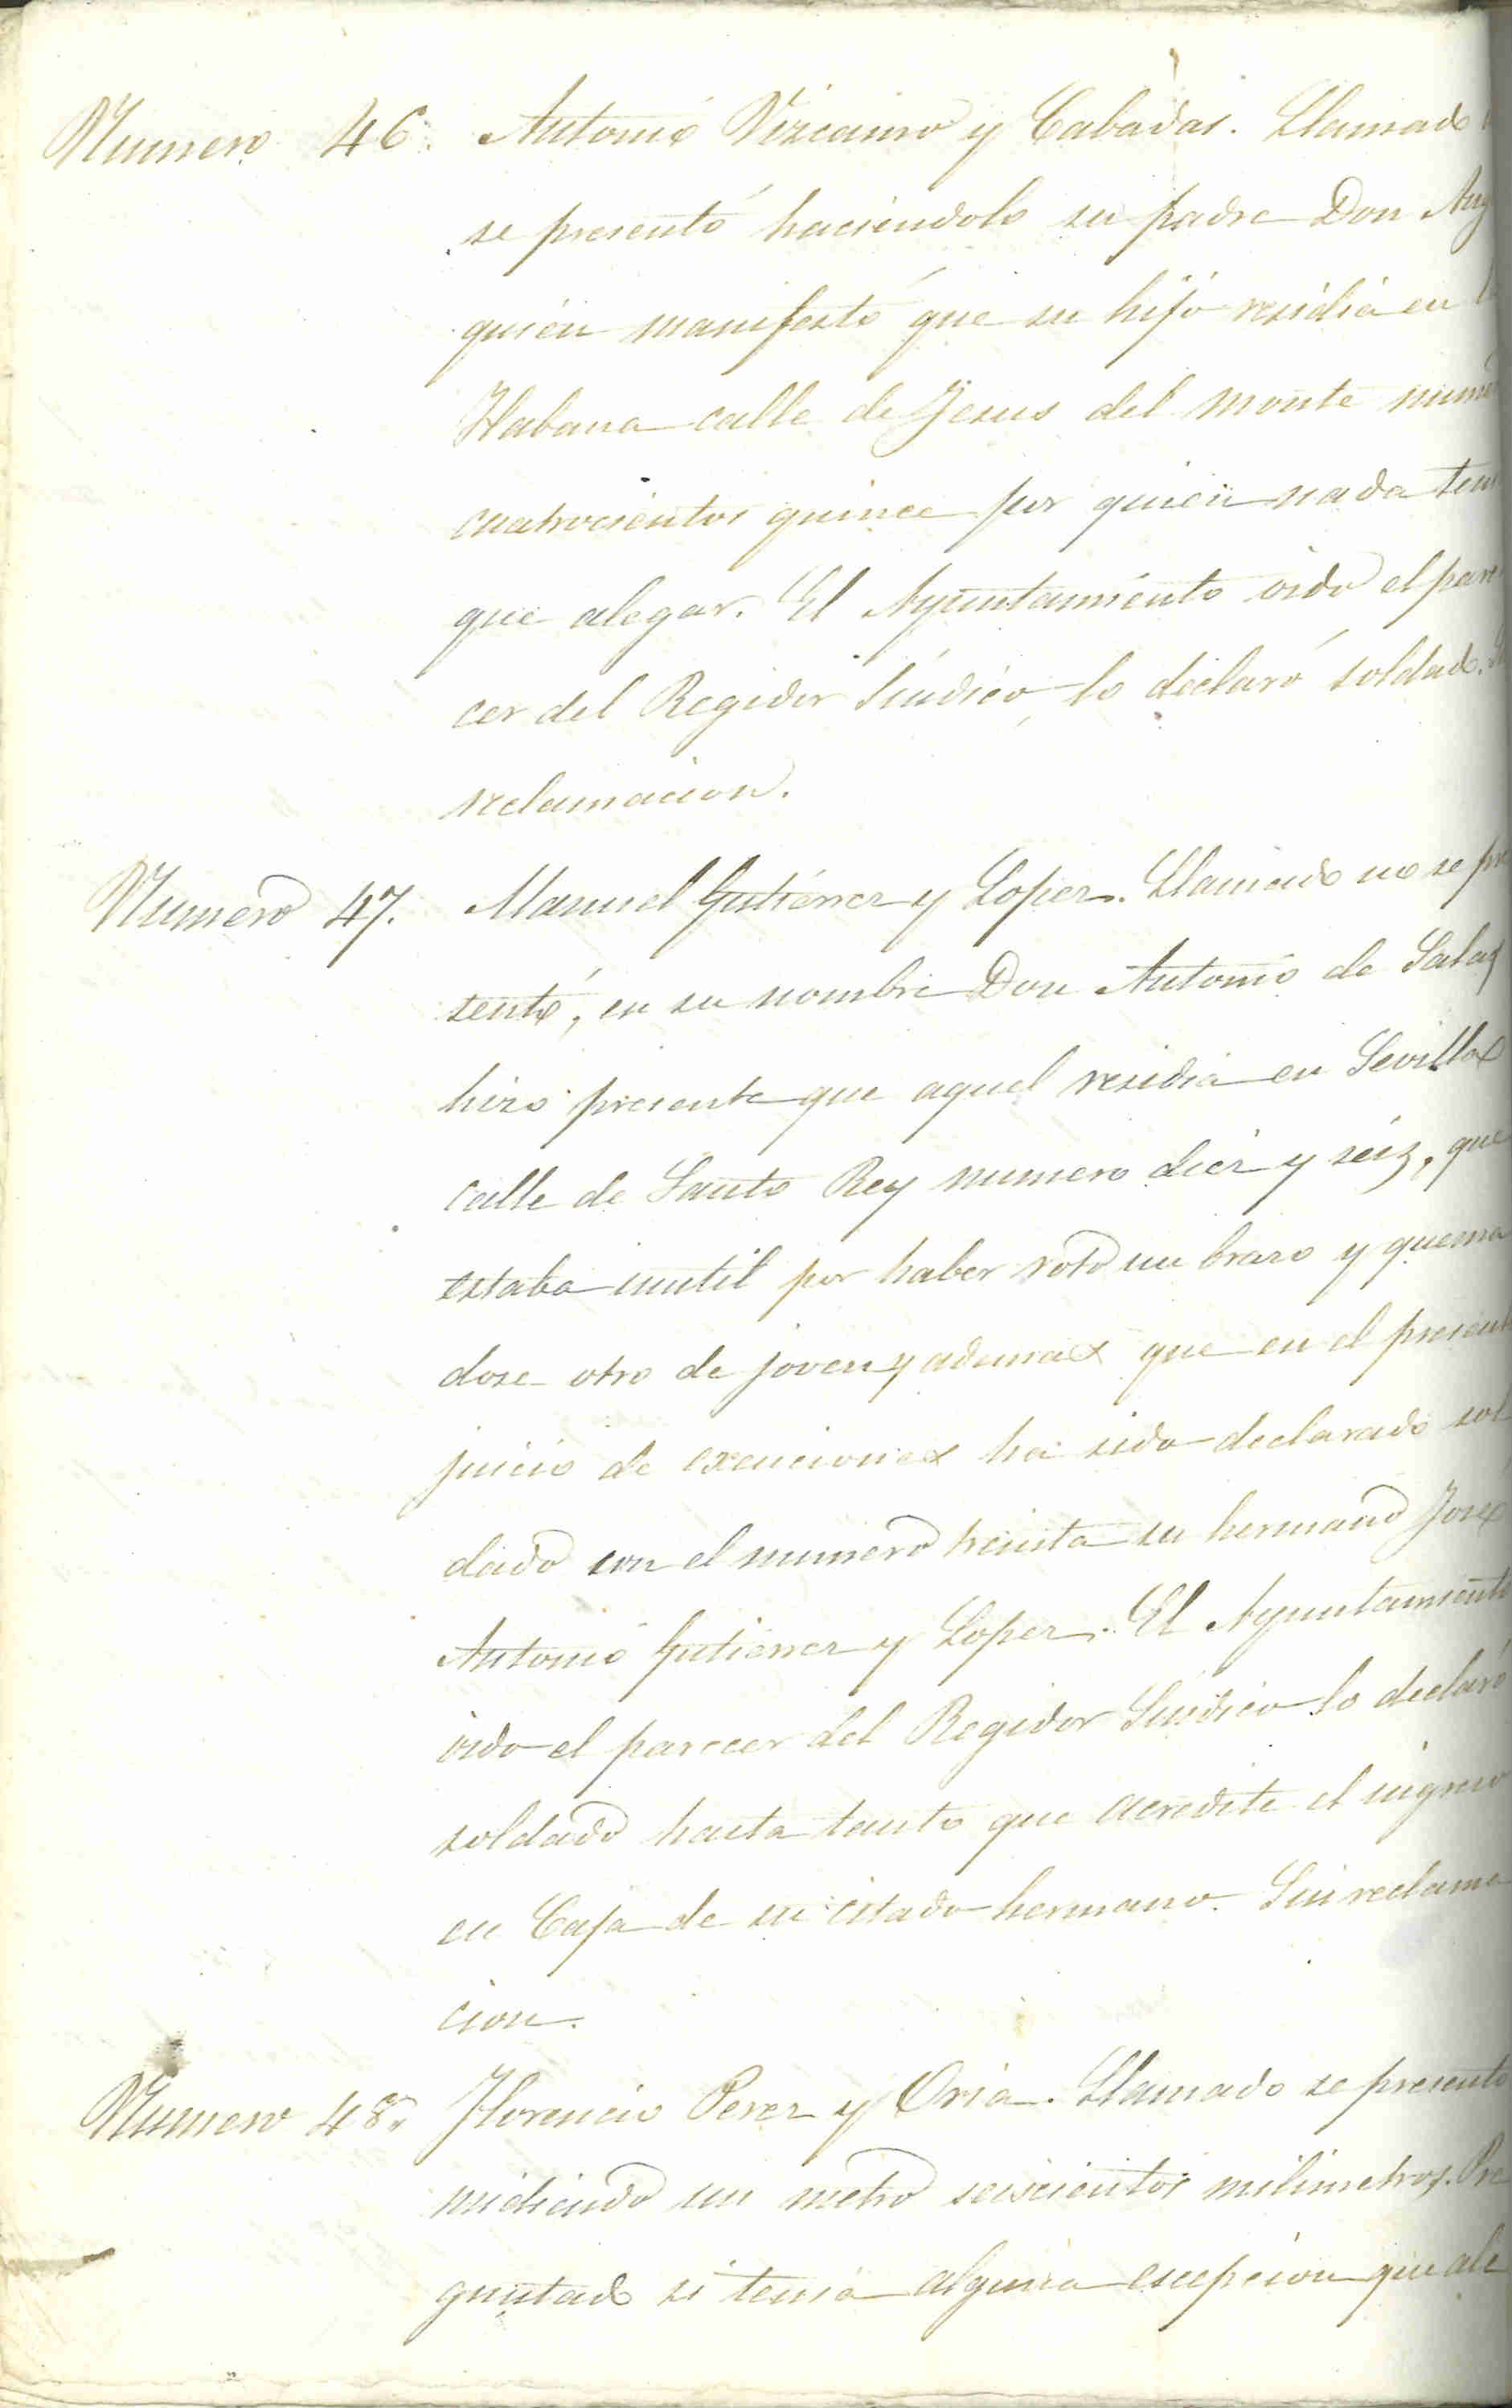 Numero 46. Antonio Vizcaino y Cabadas. Llamado
se presentó haciendolo su padre Don
quién manifestó que su hijo residia en
Habana calle de Jesus del monte num
cuatrocientos quince por quien nada ten
que alegar. El Ayuntamiento oido el pare
cer del Regidor Síndico lo declaró soldado.
reclamacion.
Numero 47. Manuel Gutierrez y Lopez. Llamado no se pre
sentó, en su nombre Don Antonio de Salas
hizo presente que aquel residia en Sevilla
calle de Santo Rey numero diez y seis, que
estaba inutil por haber roto un brazo y quema
dose otro de joven y ademas que en el present
juicio de exenciones ha sido declarado sol
dado con el numero treinta su hermano José
Antonio Gutierrez y Lopez. El Ayuntamiento
oido el parecer del Regidor Síndico lo declaró
soldado hasta tanto que acredite el ingreso
en Caja de su citado hermano. Sin reclama
cion.
Numero 48. Florencio Perez y Oria. Llamado se presentó
midiendo un metro seiscientos milimetros. Pre
guntado si tenia alguna escepcion que ale